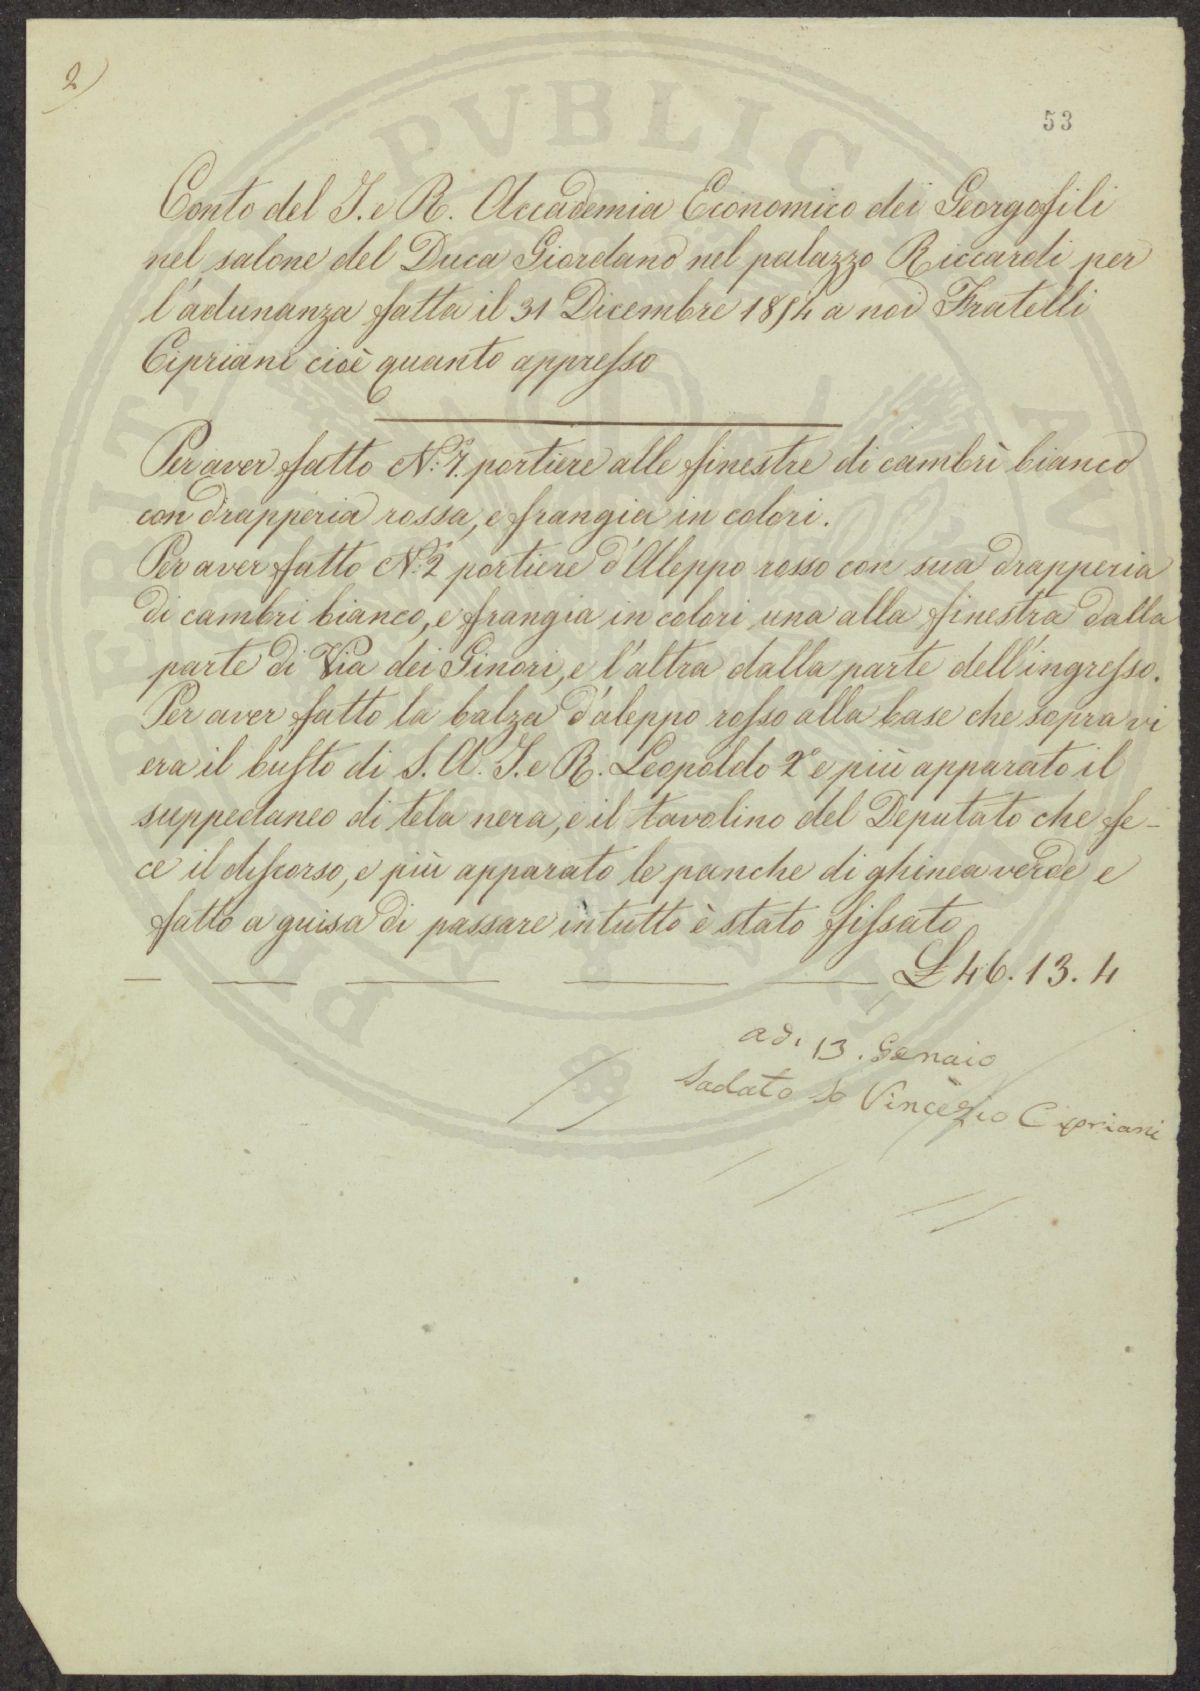 2)
53
Conto del I. e R. Accademia Economico dei Georgofili
nel salone del Duca Giordano nel palazzo Riccardi per
l'adunanza fatta il 31 Dicembre 1854 a noi Fratelli
Cipriani cioè quanto appresso
Per aver fatto N:° 7. portiere alle finestre di cambrì bianco
con drapperia rossa, e frangia in colori.
Per aver fatto N:° 2 portiere d'Aleppo rosso con sua drapperia
di cambri bianco, e frangia in colori una alla finestra dalla
parte di Via dei Ginori, e l'altra dalla parte dell'ingresso.
Per aver fatto la balza d'aleppo rosso alla base che sopra vi
era il busto di S. A. I. e R. Leopoldo 2° e più apparato il
suppedaneo di tela nera, e il tavolino del Deputato che fe-
ce il discorso, e più apparato le panche di ghinea verde e
fatto a guisa di passare in tutto è stato fissato
£ 46. 13. 4
adi 13. Genaio
Sadato Io Vincezio Cipriani
PVBLICA
PROSPERITATI AVGENDAE